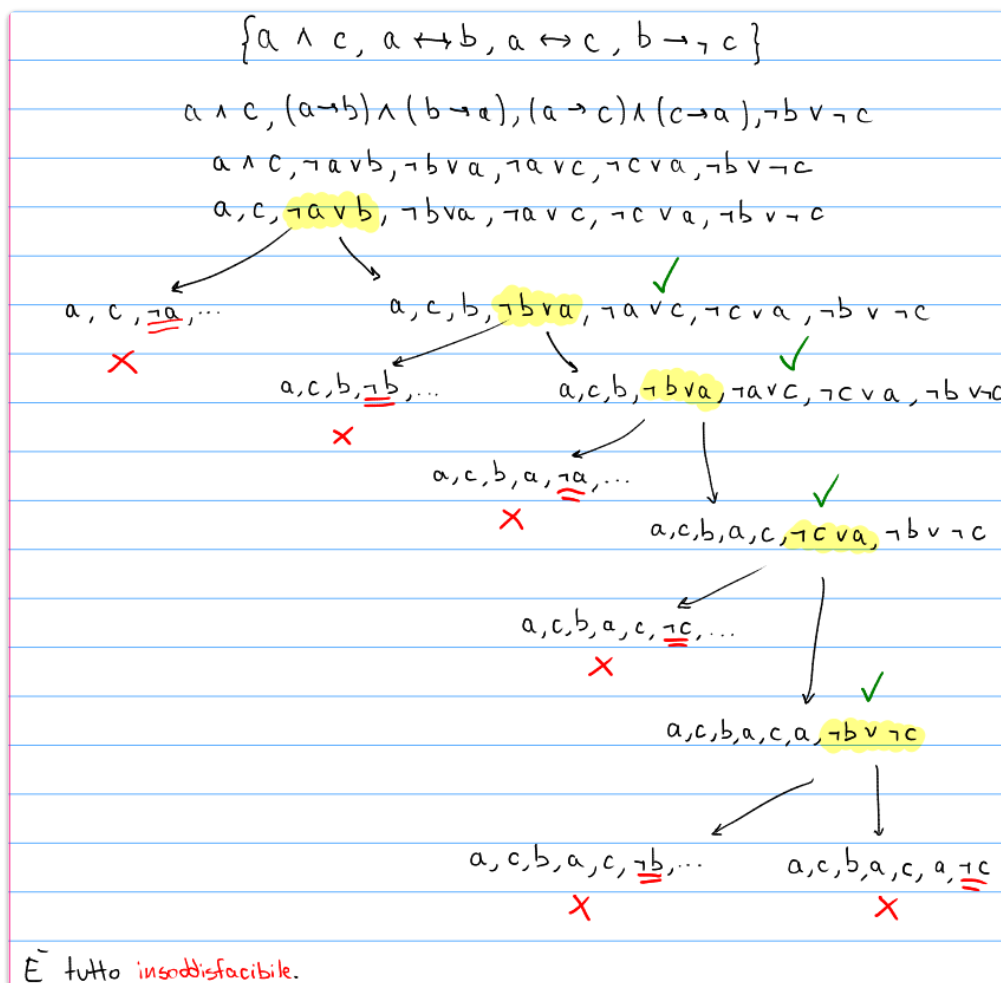 {a ∧ c, a ↔ b, a ↔ c, b → ¬c}
a ∧ c, (a→b)∧(b→a), (a→c)∧(c→a), ¬b ∨ ¬c
a ∧ c, ¬a∨b, ¬b∨a, ¬a∨c, ¬c∨a, ¬b∨¬c
a, c, ¬a∨b, ¬b∨a, ¬a∨c, ¬c∨a, ¬b∨¬c
a, c, ¬a, ...
a, c, b, ¬b∨a, ¬a∨c, ¬c∨a, ¬b∨¬c
a,c,b,¬b,...
a,c,b,¬b∨a,¬a∨c,¬c∨a,¬b∨¬c
a,c,b,a,¬a,...
a,c,b,a,c,¬c∨a,¬b∨¬c
a,c,b,a,c,¬c,...
a,c,b,a,c,a,¬b∨¬c
a,c,b,a,c,¬b,...
a,c,b,a,c,a,¬c
È tutto insoddisfacibile.